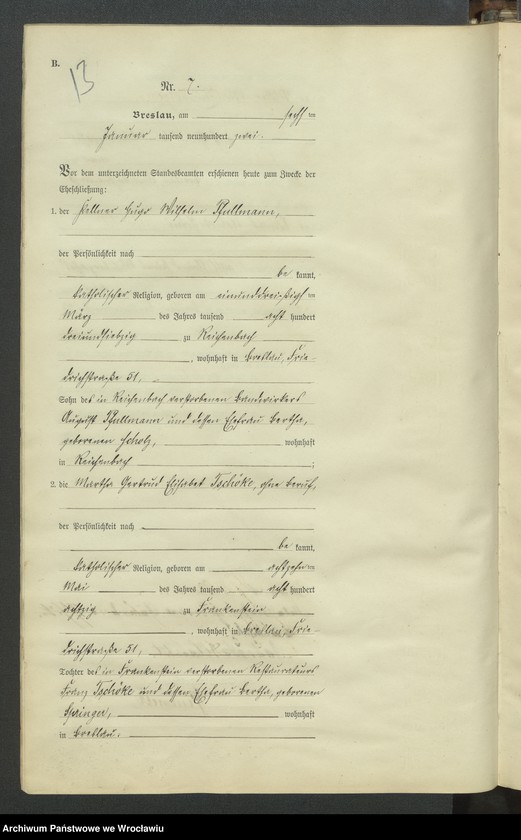 B.
13
Nr. 7.
Breslau, am sechs ten
Januar tausend neunhundert zwei.
Vor dem unterzeichneten Standesbeamten erschienen heute zum Zwecke der
Eheschließung:
1. der Kellner Hugo Wilhelm Pfullmann,
der Persönlichkeit nach
be kannt,
katholischer Religion, geboren am einunddreißigs ten
März des Jahres tausend acht hundert
dreiundsiebzig zu Reichenbach
, wohnhaft in Breslau, Frie-
drichstraße 51,
Sohn des in Reichenbach verstorbenen Handwirkers
August Pfullmann und dessen Ehefrau Bertha,
geborenen Scholz, wohnhaft
in Reichenbach ;
2. die Martha Gertrud Elisabet Tschöke, ohne Beruf,
der Persönlichkeit nach
be kannt,
katholischer Religion, geboren am achtzehn ten
Mai des Jahres tausend acht hundert
achtzig zu Frankenstein
, wohnhaft in Breslau, Frie-
drichstraße 51,
Tochter des in Frankenstein verstorbenen Restaurateurs
Franz Tschöke und dessen Ehefrau Bertha, geborenen
Springer, wohnhaft
in Breslau.
Archiwum Państwowe we Wrocławiu